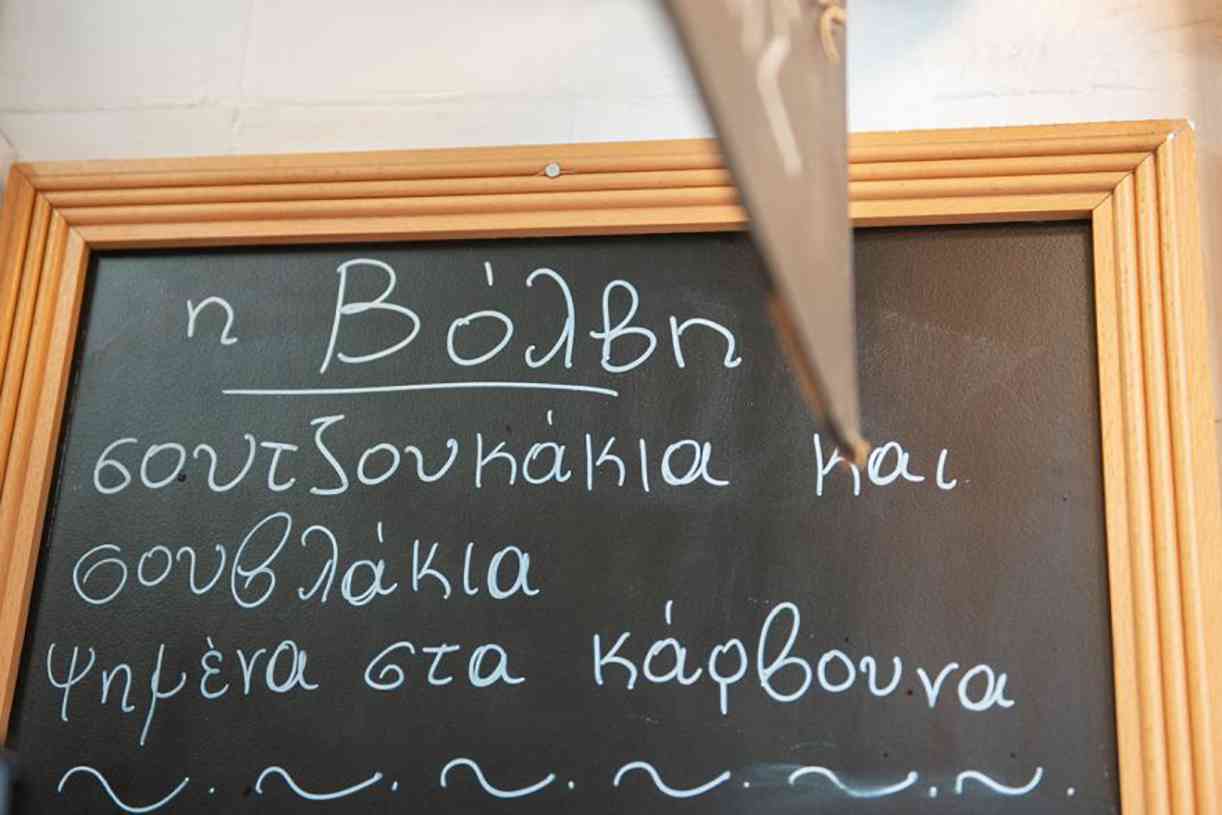 η Βόλβη
σουτζουκάκια και
σουβλάκια
ψημένα στα κάρβουνα